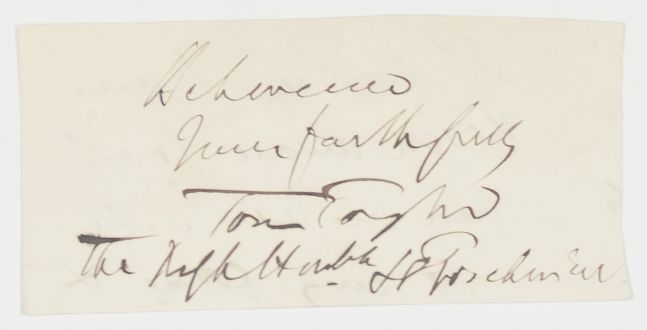 & believe me
Yours faithfully
Tom Taylor
The Right Honble G J Goschen